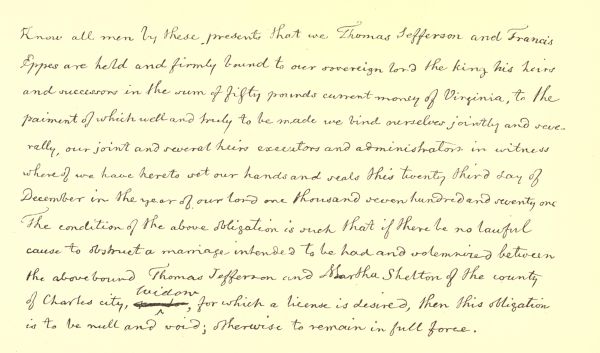 Know all men by these presents that we Thomas Jefferson and Francis
Eppes are held and firmly bound to our sovereign lord the king his heirs
and successors in the sum of fifty pounds current money of Virginia, to the
paiment of which well and truly to be made we bind ourselves jointly and seve-
rally, our joint and several heirs executors and administrators in witness
whereof we have hereto set our hands and seals this twenty third day of
December in the year of our lord one thousand seven hundred and seventy one
The condition of the above obligation is such that if there be no lawful
cause to obstruct a marriage intended to be had and solemnized between
the abovebound Thomas Jefferson and Martha Skelton of the county
of Charles city, widow, for which a license is desired, then this obligation
is to be null and void; otherwise to remain in full force.